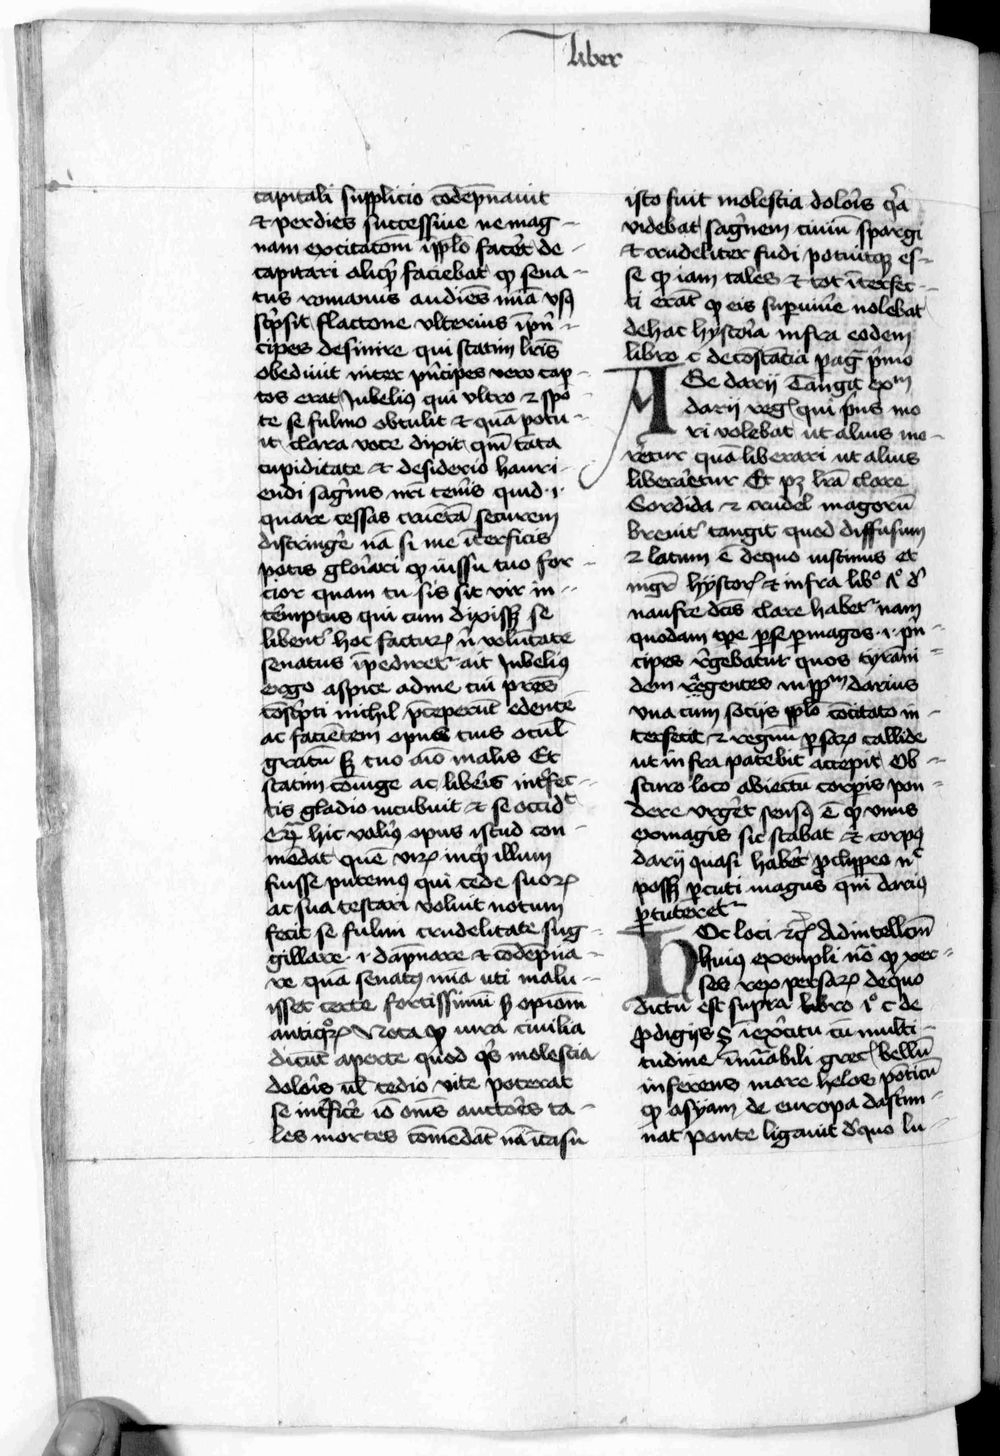 liber
capitali supplicio cōdēpnauit
et per dies successiue ne mag-
nam excitatōm ip̄plo facēt de-
capitari aliq̄s faciebat qp sena-
tus romanus audiēs nūā vsq
scp̄sit flactone vlterius ip̄n-
cipes desinire qui statim lr̄is
obediuit inter p̄ncipes vero cap-
tos erat Jubelius qui vltro et spō-
te se fuluio obtulit et quā potu-
it clara voce dixit qm̄ tāta
cupiditate et desiderio hauri-
endi sāḡnis nr̄i tenēis quid .i.
quare cessas cruētā securem
distringē nā si me īterficis
potis glōiari qp iussu tuo for-
cior quam tu sis sit vir in-
tēmptus qui cum dixissꝫ se
libentᷓ hoc facturꝝ n̄ volūtate
senatus īpediretᷓ ait Jubelius
ergo aspice ad me cui pr̄es
cōscp̄ti nichil p̄ceperūt edente
ac facietem opus tuis ocul̄
gratū sꝫ tuo aīo malis Et
statim cōiuge ac libēis int̄fec-
tis gladio incubuit et se occidᵗ
hic valīus opus istud con-
mēdat quē virꝝ inq̄ illum
fuisse putemus qui cede suorꝝ
ac sua testari voluit notum
fecit se fuluii crudelitate sug-
gillare .i. dāpnare et cōdēpna-
re quā senatus mīa uti malu-
isset certe fortissimū sꝫ opiōm
antiqᷓorꝝ Nota qp iura ciuilia
dicūt aperte quod q̄s molestia
dolōis ul̄ tedio vite poterat
se int̄ficē iō om̄s auctōes ta-
les mortes cōmēdāt nā ītasu
isto fuit molestia dolōis q̄a
videbat sāḡnem ciuiū spargi
et crudeliter fudi potuitqꝫ es-
se qp iam tales et tot īterfec-
ti erāt qp eis supuiuē nolebat
de hac hystōia infra eodem
libro c de cōstācia pag̅ p̄mo
A Se darij Tangit exᵐ
darij reg̅ qui p̄us mo
ri volebat ut alius mo-
rētur quā liberari ut alius
liberāetur Et pꝫ lr̄a clare
Sordida et crudel̄ magorū
breuitᷓ tangit quod diffusum
et latum ē de quo iustinus et
mgr̄ hystorꝝ et infra libᵒ
clare habetᷓ nam
quodam tp̄e p̄se p̄ magos .i. p̄n-
cipes r̄gebatur quos tyrani-
dem r̄gentes in pp̄ᵐ darius
vna cum socijs pp̄lo cōcitato in-
terfecit et regnū p̄sarꝝ callide
ut infra patebit accepit Ob-
scuro loco abiectū corpis pon-
dere vrgēt sensus ē qp vnus
ex magis sic stabat et corpus
darij quasi habēt p̄ clippeo nᶜ
possꝫ p̄cuti magus qm̄ darius
p̄cuterētᷓ
H Oc loci etcꝝ Ad intellcm̄
huius exempli nō qp xer-
ses rex persarꝝ de quo
dictū est supra libro 1ᵒ c de
p̄digijs īexercitu cū multi-
tudine īnūabili grecꝭ bellū
inferens mare helos pōticū
qp asyam de europa dastim-
nat ponte ligauit dᷓ quo lu-